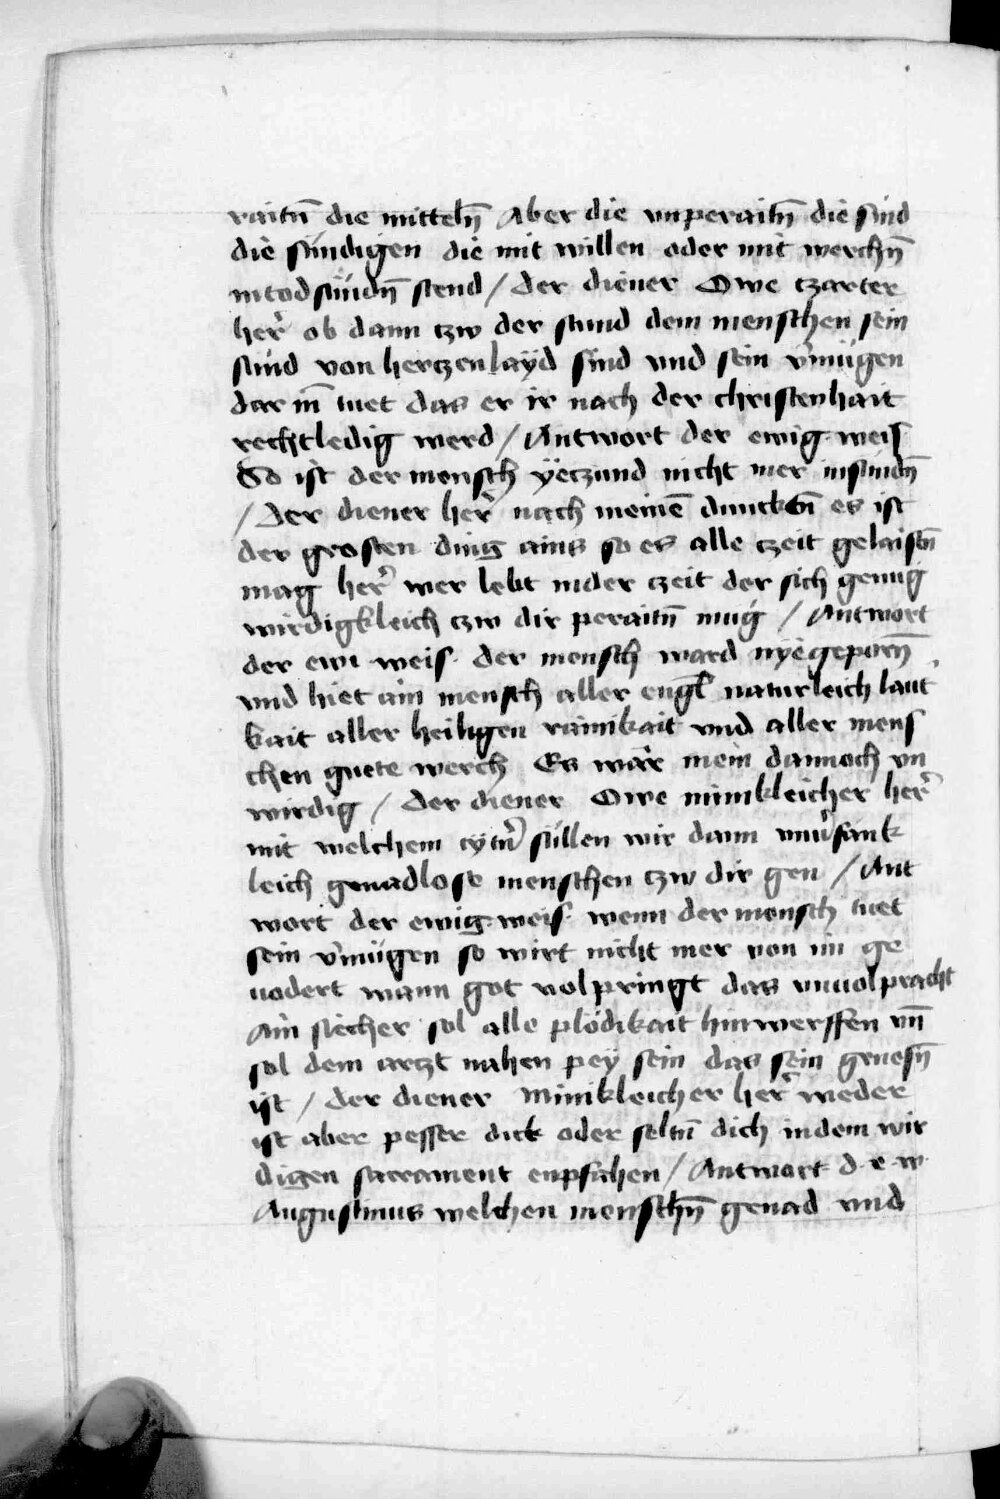 raitn̄ die mitteln̄ Aber die vnperaitn̄ die sind
die sündigen die mit willen oder mit werchn̄
in tod sündn̄ stend / Der diener Owe tzarter
her̄ ob dann tzw der stund dem menschen sein
sünd von hertzen layd sind vnd sein v̄mügen
dar in̄ tuet das er ir nach der christenhait
recht ledig werd / Antwort der ewig weis
So ist der mensch yeczund nicht mer in sündn̄
/ Der diener her̄ nach meinē duncken̄ es ist
der grosten ding ains so es alle czeit gelaistn̄
mag her̄ wer lebt in der czeit der sich genug
wirdigkleich tzw dir peraitn̄ mug / Antwort
der ewi weis der mensch ward nye geporn̄
vnd hiet ain mensch aller engl̄ naturleich laut
kait aller heiligen rainikait vnd aller mens
chen guete werch Es wär mein dannoch vn
wirdig / Der diener Owe minikleicher her̄
mit welchem cytr̄ süllen wir dann
leich genadlose menschen tzw dir gen / Ant
wort der ewig weis wenn der mensch tuet
sein v̄mügen so wirt nicht mer von im ge
uodert wann got volpringt das vnuolpracht
Ain siecher sol alle plödikait hinwerffen vn̄
sol dem artzt nahen pey sein das sein genesn̄
ist / Der diener Minikleicher her̄ weder
ist aber pesser dick oder seltn̄ dich in dem wir
digen sacrament enpfahen / Antwort d e w
Augustinus welchen menschn̄ genad vnd